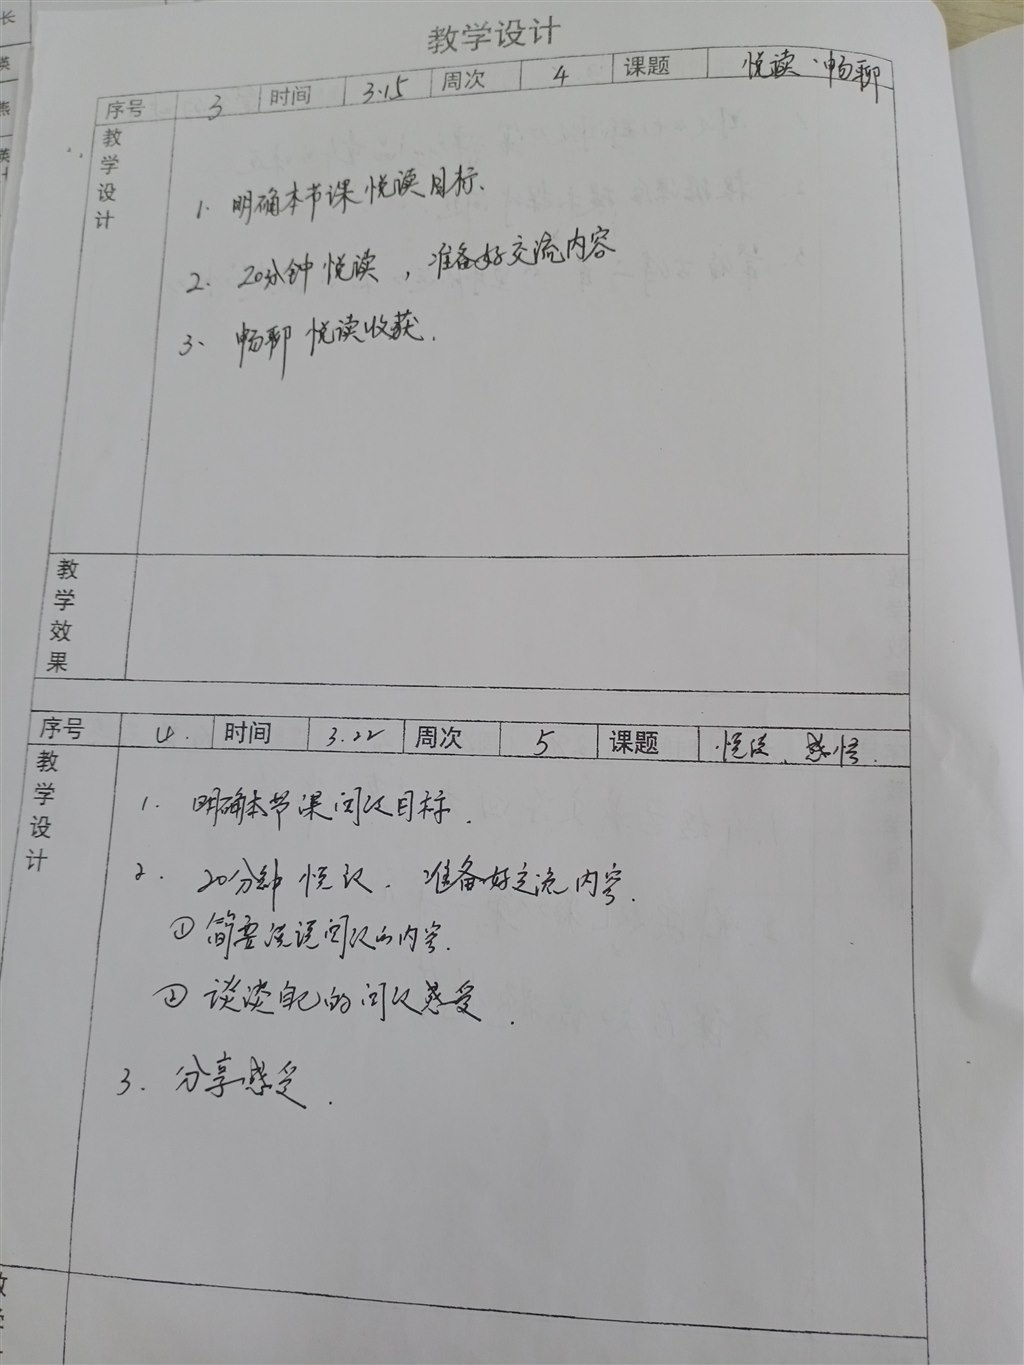 教学设计
序号 3 时间 3.15 周次 4 课题 悦读·畅聊
教学设计
1. 明确本节课悦读目标.
2. 20分钟悦读，准备好交流内容
3. 畅聊悦读收获.
教学效果
序号 4. 时间 3.22 周次 5 课题 悦读、感悟.
教学设计
1. 明确本节课阅读目标.
2. 20分钟悦读. 准备好交流内容.
① 简要说说阅读的内容.
② 谈谈自己的阅读感受.
3. 分享感受.